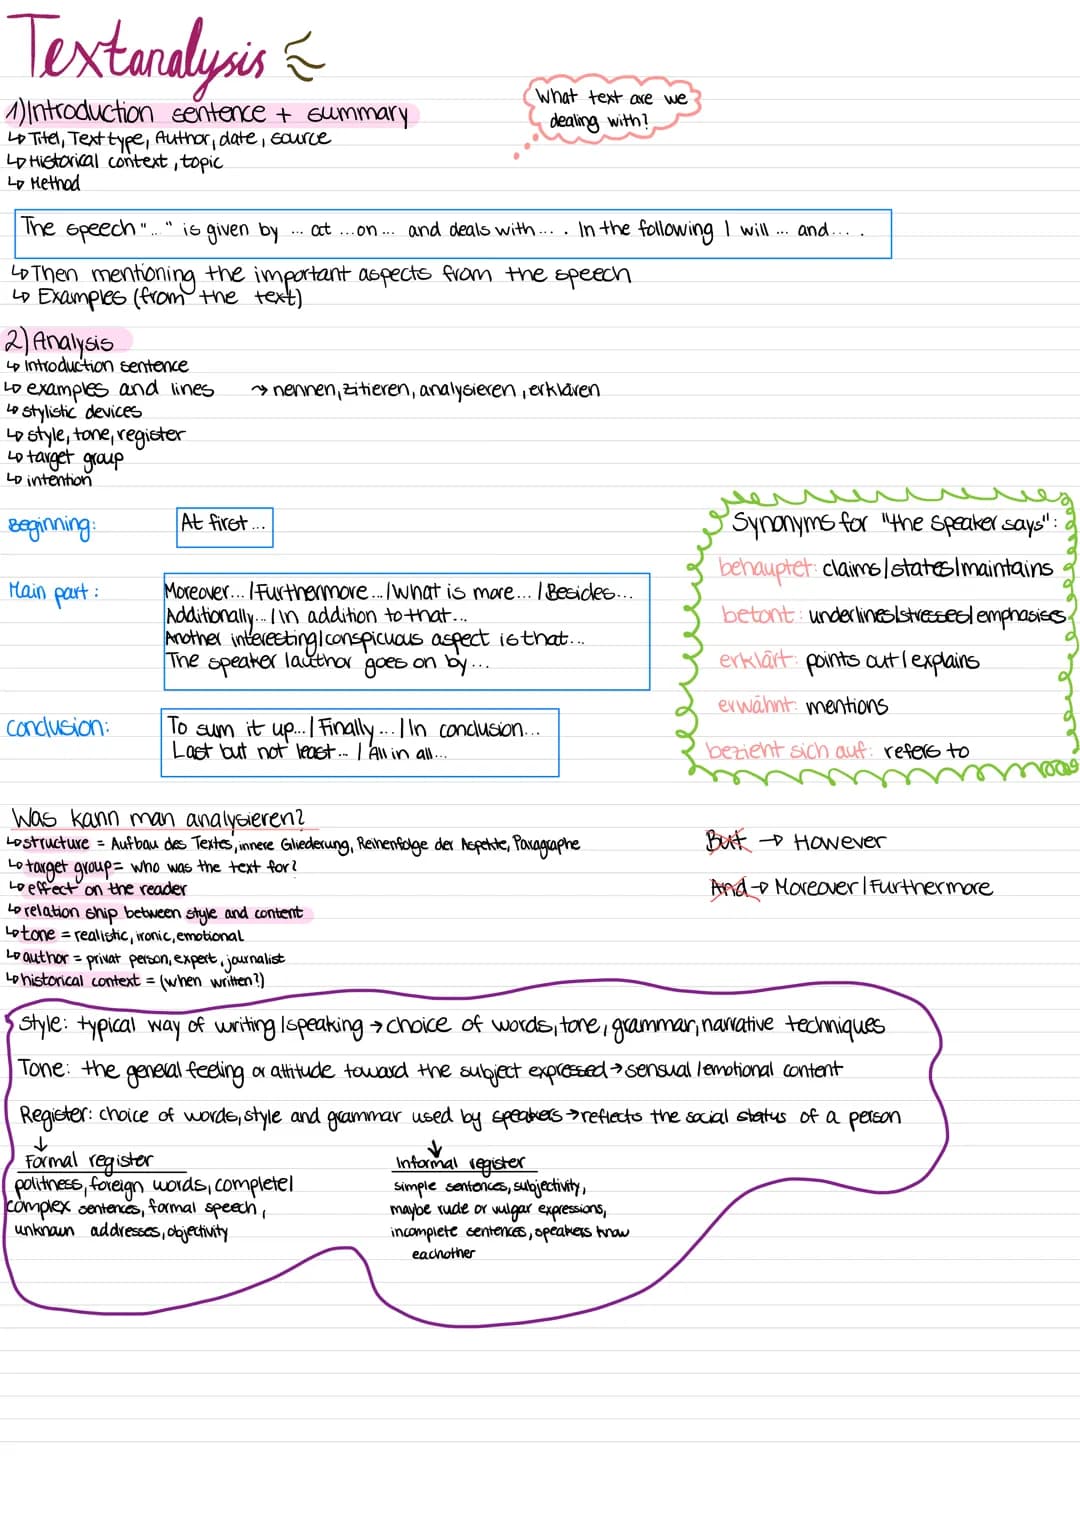 Textanalysis
1) Introduction sentence + summary
What text are we
dealing with?
↳ Titel, Text type, Author, date, source
↳ Historical context, topic
↳ Method
The speech ".." is given by ... at ... on ... and deals with.... In the following I will ... and....
↳ Then mentioning the important aspects from the speech
↳ Examples (from the text)
2) Analysis
↳ Introduction sentence
↳ examples and lines → nennen, zitieren, analysieren, erklären
↳ stylistic devices
↳ style, tone, register
↳ target group
↳ intention
Beginning:
At first...
Main part:
Moreover... / Furthermore... / What is more... / Besides...
Additionally... / In addition to that...
Another interesting/conspicuous aspect is that...
The speaker / author goes on by...
Conclusion:
To sum it up... / Finally... / In conclusion...
Last but not least... / All in all...
Synonyms for "the speaker says":
behauptet: claims / states / maintains
betont: underlines / stresses / emphasises
erklärt: points out / explains
erwähnt: mentions
bezieht sich auf: refers to
Was kann man analysieren?
↳ structure = Aufbau des Textes, innere Gliederung, Reihenfolge der Aspekte, Paragraphe
↳ target group = who was the text for?
↳ effect on the reader
↳ relation ship between style and content
↳ tone = realistic, ironic, emotional
↳ author = privat person, expert, journalist
↳ historical context = (when written?)
But → However
And → Moreover / Furthermore
Style: typical way of writing / speaking → choice of words, tone, grammar, narrative techniques
Tone: the general feeling or attitude toward the subject expressed → sensual / emotional content
Register: choice of words, style and grammar used by speakers → reflects the social status of a person
↓
Formal register
politness, foreign words, complete /
complex sentences, formal speech,
unknown addresses, objectivity
↓
Informal register
simple sentences, subjectivity,
maybe rude or vulgar expressions,
incomplete sentences, speakers know
eachother